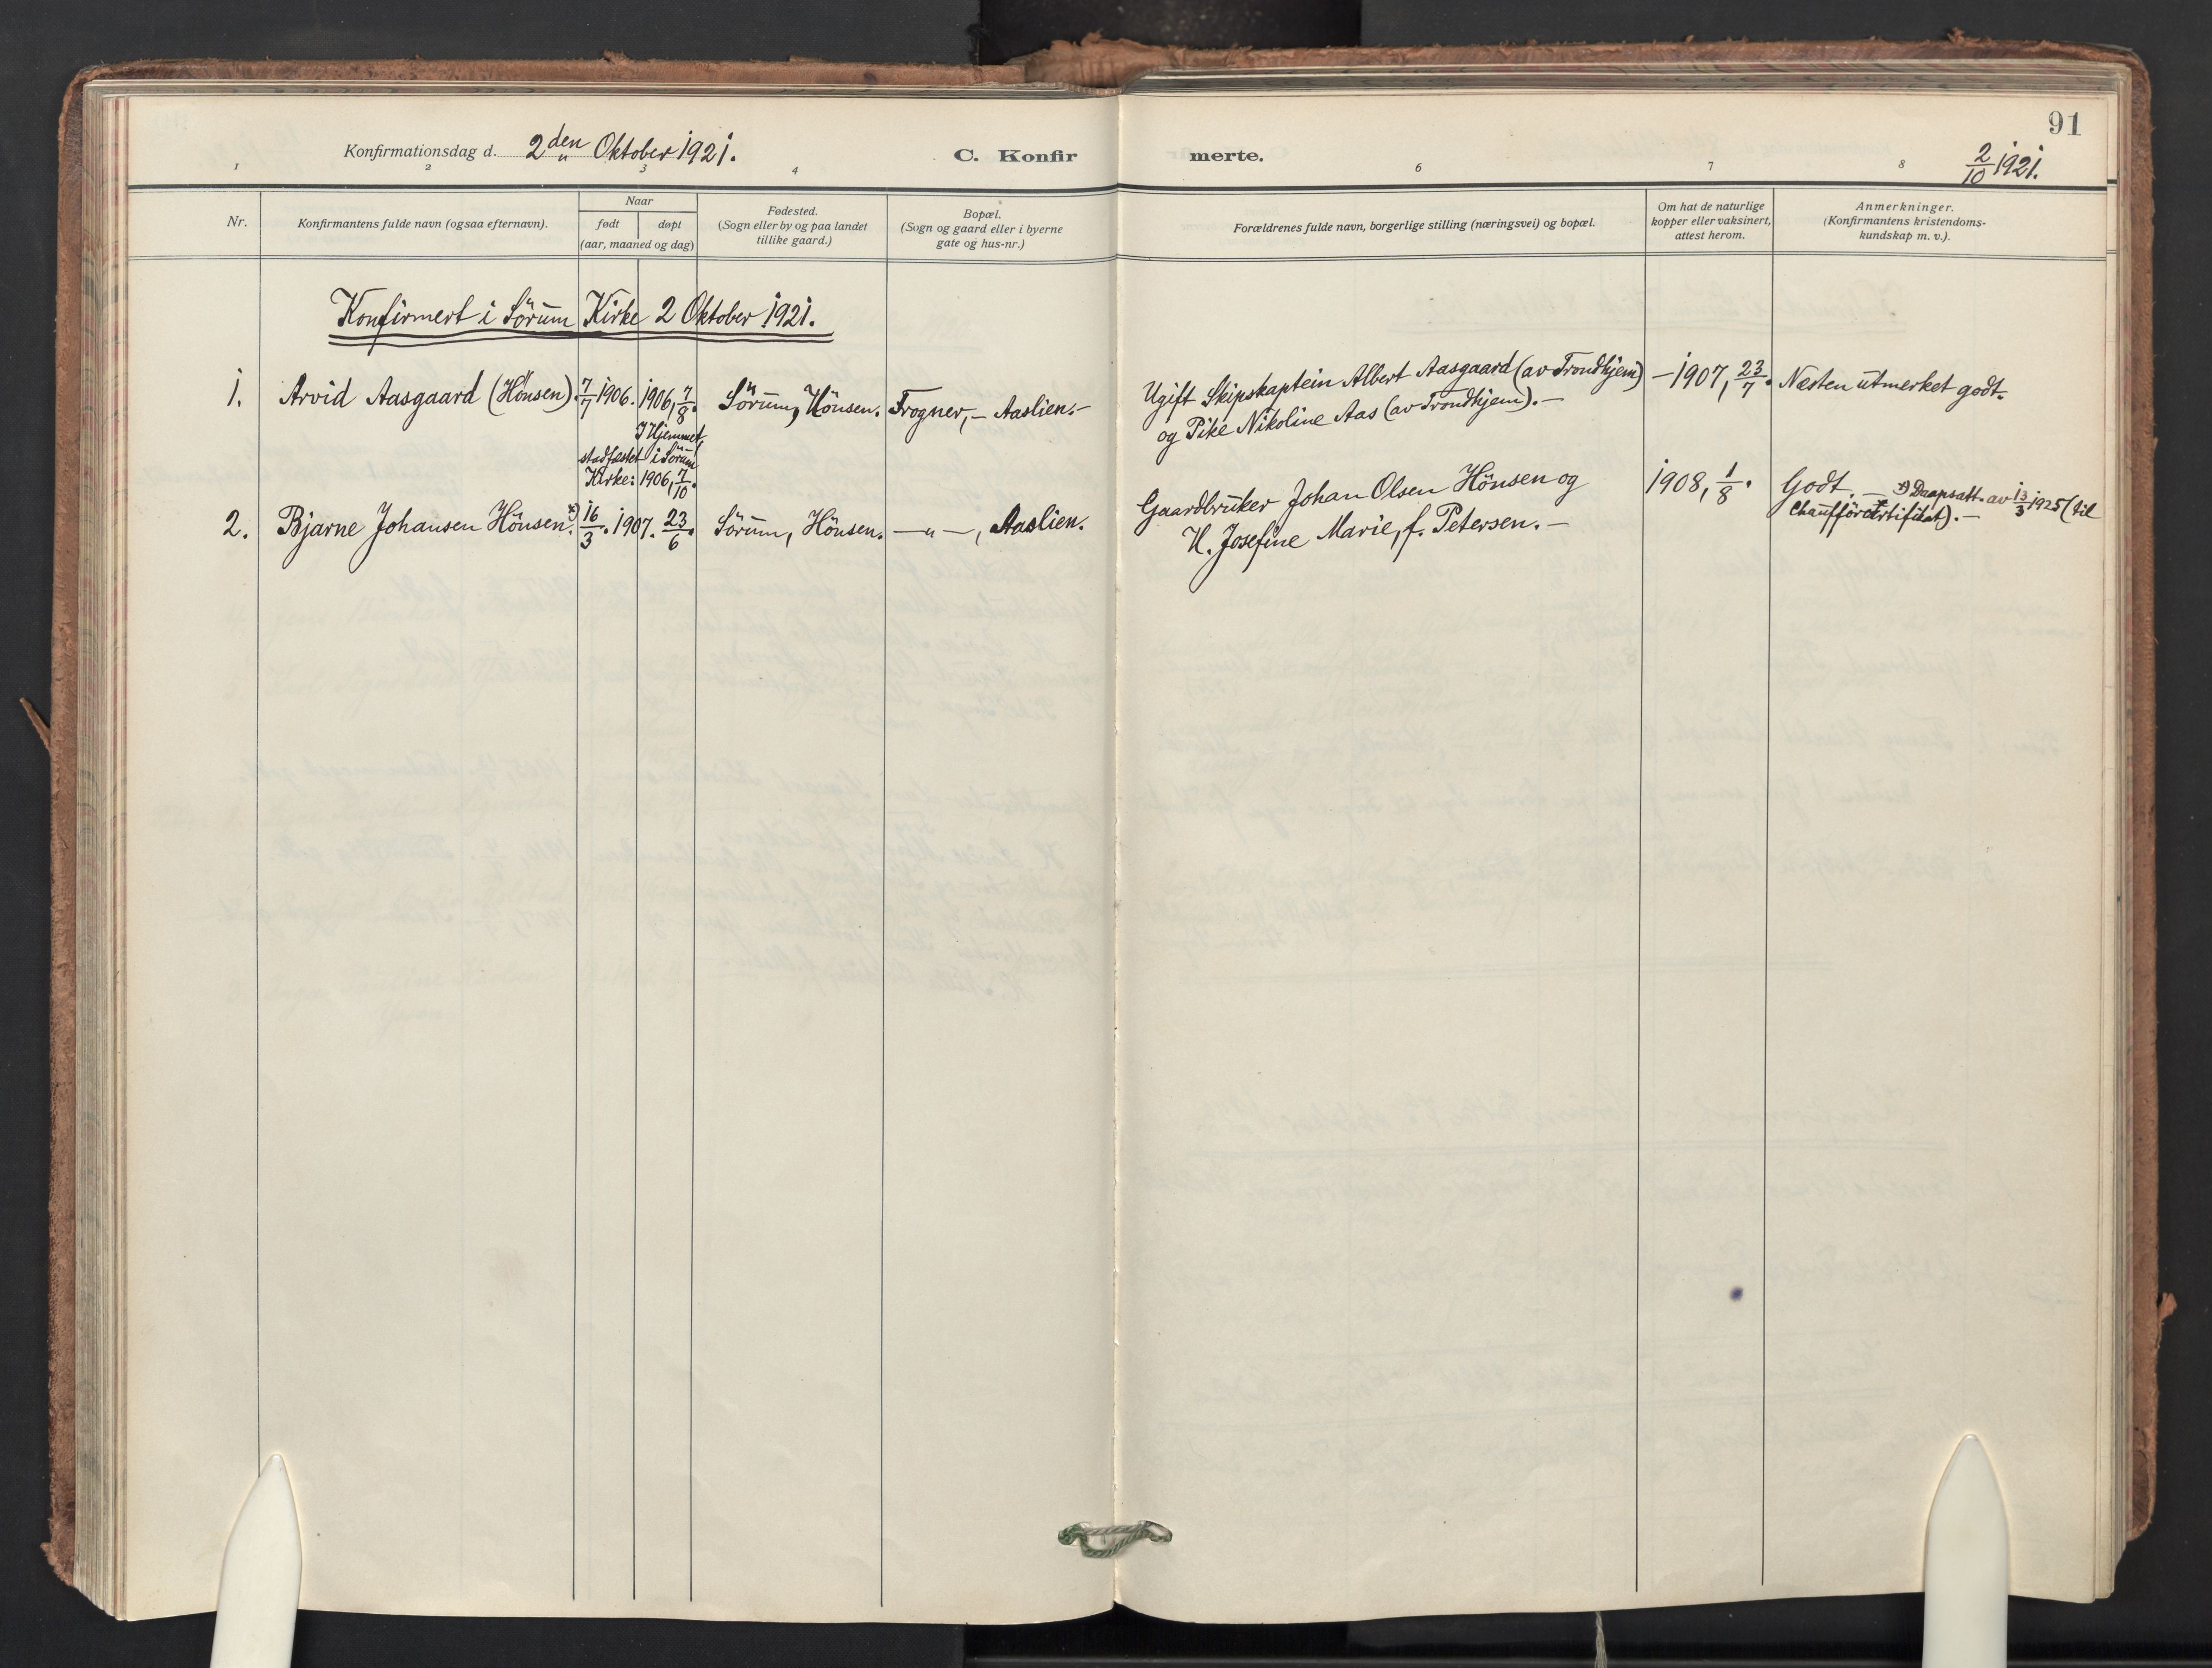 91
Konfirmationsdag d. 2den Oktober 1921.
C. Konfirmerte.
2/10 1921.
1 2 3 4 6 7 8
Nr.
Konfirmantens fulde navn (ogsaa efternavn).
Naar
født døpt
(aar, maaned og dag)
Fødested.
(Sogn eller by og paa landet
tillike gaard.)
Bopæl.
(Sogn og gaard eller i byerne
gate og hus-nr.)
Forældrenes fulde navn, borgerlige stilling (næringsvei) og bopæl.
Om hat de naturlige
kopper eller vaksinert,
attest herom.
Anmerkninger.
(Konfirmantens kristendoms-
kundskap m. v.).
Konfirmert i Sörum Kirke 2 Oktober 1921.
1. Arvid Aasgaard (Hönsen). 7/7 1906. 1906, 7/8. Sörum, Hönsen. Frogner, – Aaslien. –
I Hjemmet,
stadfæstet i Sörum
Kirke: 1906, 7/10.
Ugift Skipskaptein Albert Aasgaard (av Trondhjem) –
og Pike Nikoline Aas (av Trondhjem). –
1907, 23/7. Næsten utmerket godt.
2. Bjarne Johansen Hönsen. x) 16/3. 1907. 23/6. Sörum, Hönsen. —„—, Aaslien.
Gaardbruker Johan Olsen Hönsen og
H. Josefine Marie, f. Petersen. –
1908, 1/8. Godt. – x) Daapsatt. av 13/3 1925 (til
Chaufförcertifikat). –